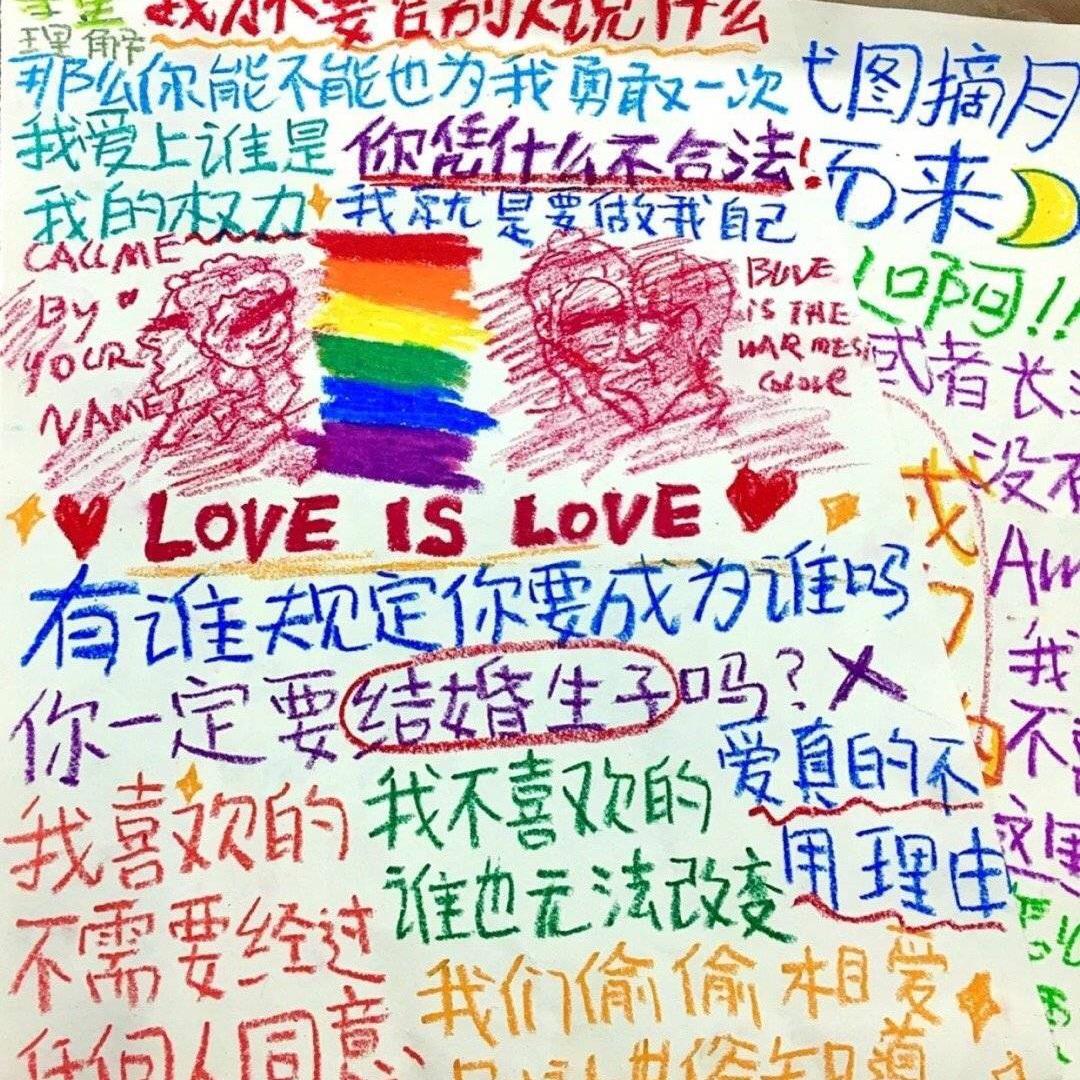 理解
我从不要告别人说什么
那么你能不能也为我勇敢一次
我爱上谁是
我的权力
你凭什么不合法!
我就是要做我自己
图摘月
而来
CALL ME
BY
YOUR
NAME
BLUE
IS THE
WARMEST
COLOUR
啊!!
或者长
没
LOVE IS LOVE
有谁规定你要成为谁吗
你一定要结婚生子吗?
我
不
爱真的不
用理由
这里
我喜欢的
不需要经过
任何人同意
我不喜欢的
谁也无法改变
我们偷偷相爱